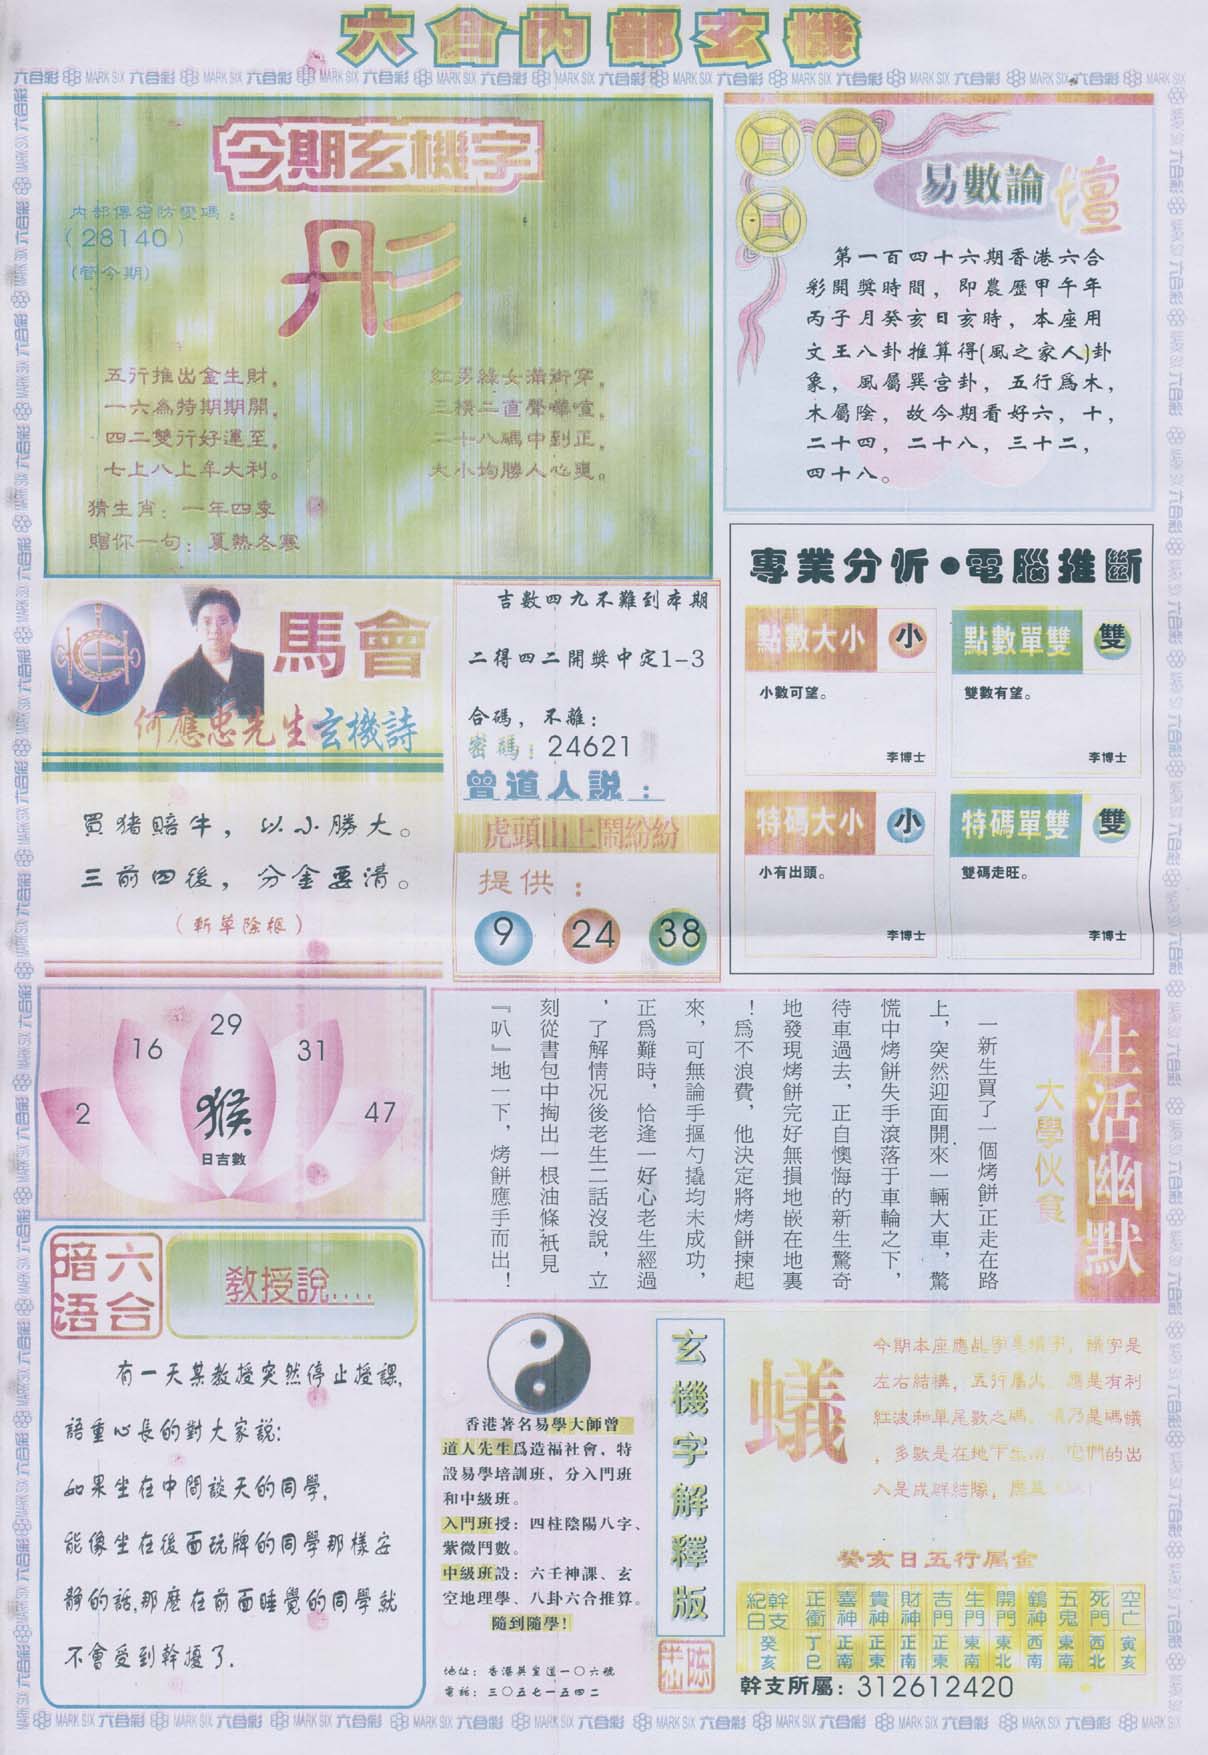 六合內部玄機
今期玄機字
內部傳密防變碼：
（28140）
(管今期)
彤
五行推出金生財。
一六為特期期開。
四二雙行好運至。
七上八上牟大利。
紅男綠女滿街穿。
三橫二直聲嘩喧。
二十八碼中到正。
大小均勝人心
猜生肖：一年四季
贈你一句：夏熱冬寒
易數論壇
第一百四十六期香港六合
彩開獎時間，即農歷甲午年
丙子月癸亥日亥時，本座用
文王八卦推算得(風之家人)卦
象，風屬巽宮卦，五行爲木，
木屬陰，故今期看好六，十，
二十四，二十八，三十二，
四十八。
馬會
何應忠先生玄機詩
買猪賠牛，以小勝大。
三前四後，分金要清。
（斬草除根）
吉數四九不難到本期
二得四二開獎中定1-3
合碼，不離：
密碼：24621
曾道人説：
虎頭山上鬧紛紛
提供：
9 24 38
專業分析●電腦推斷
點數大小 小
小數可望。
李博士
點數單雙 雙
雙數有望。
李博士
特碼大小 小
小有出頭。
李博士
特碼單雙 雙
雙碼走旺。
李博士
2 16 29 31 47
猴
日吉數
生活幽默
大學伙食
一新生買了一個烤餅,正走在路
上，突然迎面開來一輛大車，驚
慌中烤餅失手滾落于車輪之下，
待車過去，正自懊悔的新生驚奇
地發現烤餅完好無損地嵌在地裏
！爲不浪費，他決定將烤餅揀起
來，可無論手摳勺撬均未成功，
正爲難時，恰逢一好心老生經過
，了解情況後老生二話沒說，立
刻從書包中掏出一根油條,衹見
『叭』地一下，烤餅應手而出！
六合暗语
教授說....
有一天某教授突然停止授課,
語重心長的對大家説:
如果坐在中間談天的同學,
能像坐在後面玩牌的同學那樣安
靜的話,那麽在前面睡覺的同學就
不會受到幹擾了.
香港著名易學大師曾
道人先生爲造福社會，特
設易學培訓班，分入門班
和中級班。
入門班授：四柱陰陽八字、
紫微鬥數。
中級班設：六壬神課、玄
空地理學、八卦六合推算。
隨到隨學！
地址：香港英皇道一〇六號
電話：三〇五七一五四二
玄機字解釋版
蟻
今期本座應
字是
左右結構，五行屬火，應是有利
紅波和單尾數之碼。
乃是螞蟻
，多數是在地下生活，它們的出
入是成群結隊，
癸亥日五行屬金
幹支紀日 正衝 喜神 貴神 財神 吉門 生門 開門 鶴神 五鬼 死門 空亡
癸亥 丁巳 正南 正東 正南 正東 東南 東北 西南 東南 西北 寅亥
幹支所屬：312612420
六合彩 MARK SIX 六合彩 MARK SIX 六合彩 MARK SIX 六合彩 MARK SIX